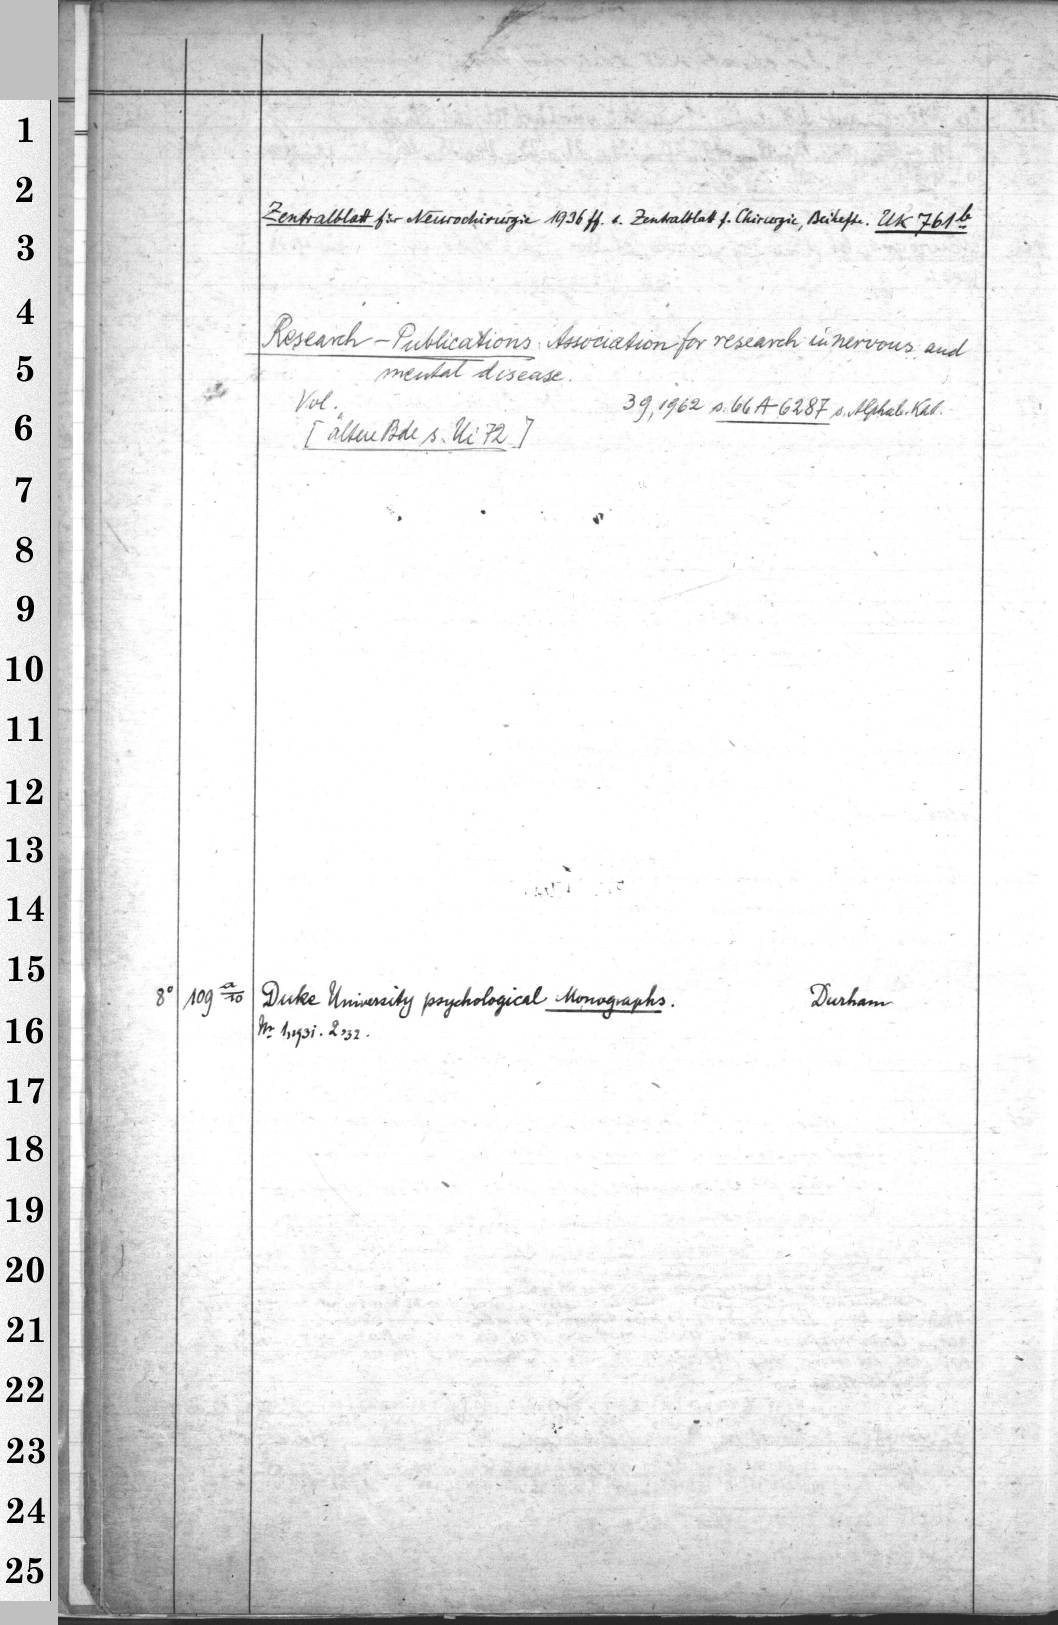 1
2
Zentralblatt für Neurochirurgie 1936 ff. s. Zentralblatt f. Chirurgie, Beihefte. UK 761 b
3
4
Research-Publications. Association for research in nervous and
5
mental disease.
Vol. 39, 1962 s. 66 A 6287 s. Alphab. Kat.
6
[ältere Bde s. Ui 72]
7
8
9
10
11
12
13
14
15
8° 109 a/10 Duke University psychological Monographs. Durham
16
Nr 1, 1931. 2, 32.
17
18
19
20
21
22
23
24
25